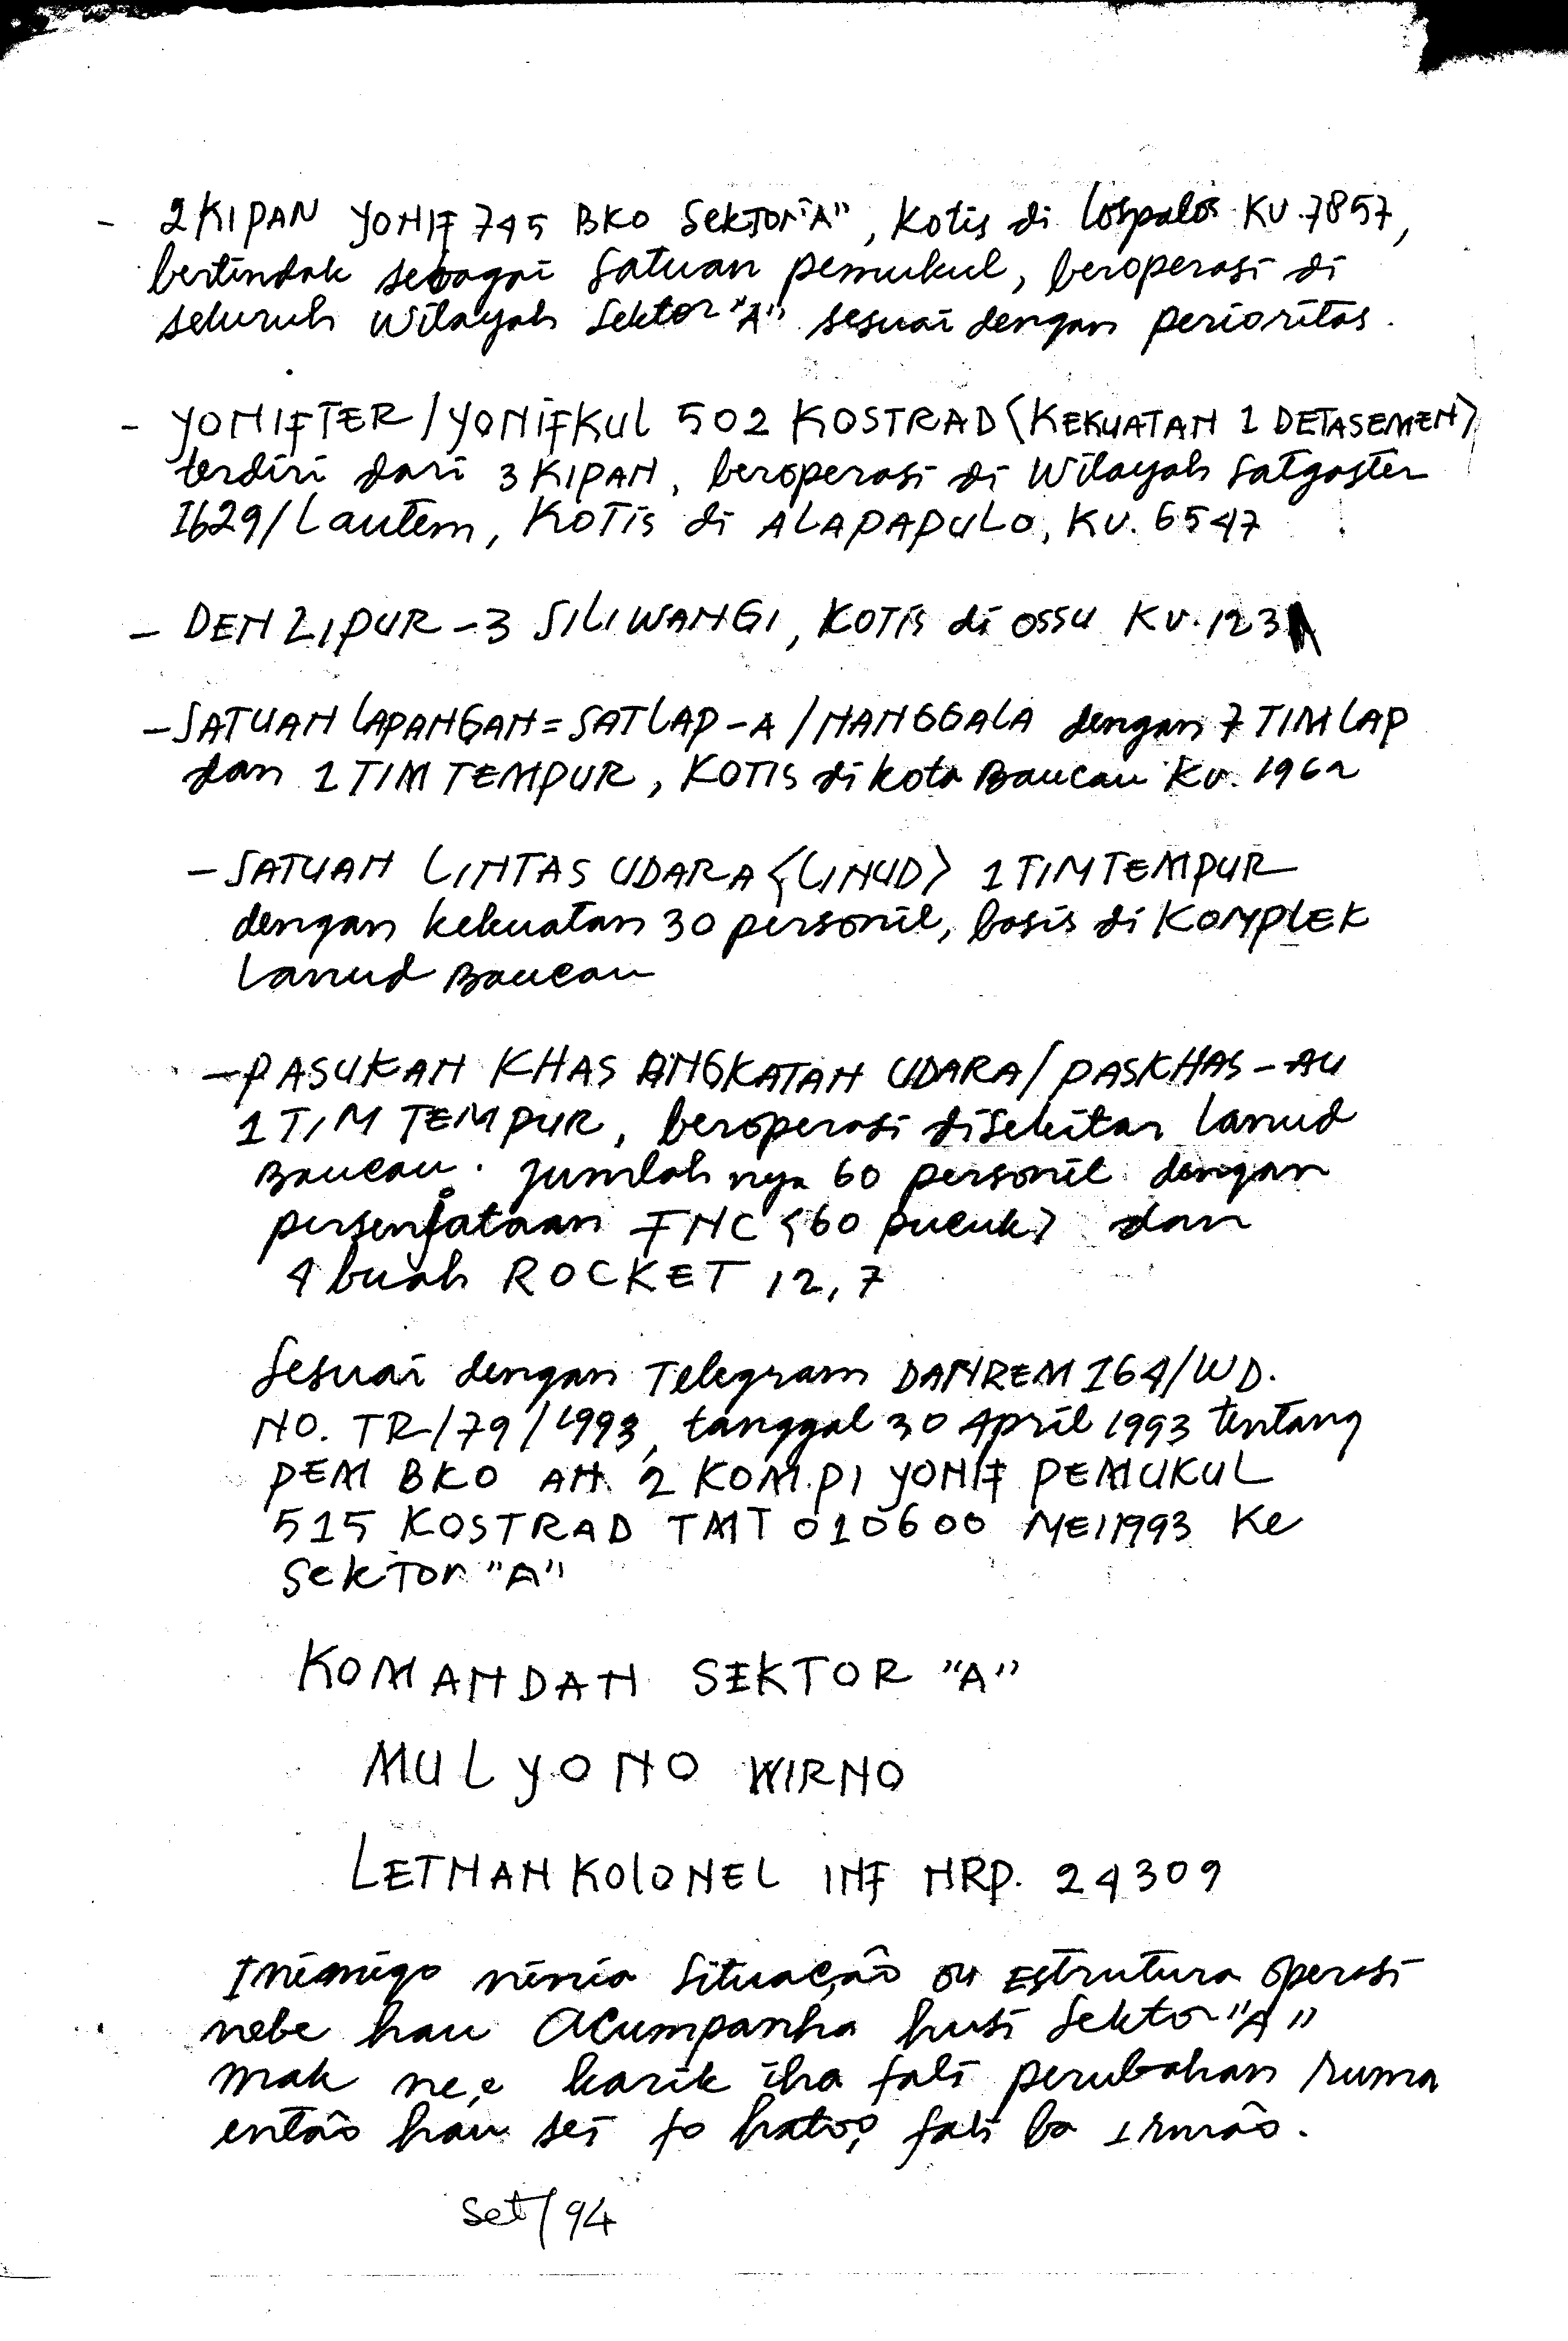 - 2 KIPAN YONIF 745 BKO Sektor "A", Kotis di Lospalos KV.7857,
bertindak sebagai Satuan pemukul, beroperasi di
seluruh Wilayah Sektor "A" sesuai dengan perioritas.
- YONIFTER/YONIFKUL 502 KOSTRAD (KEKUATAN 1 DETASEMEN)
terdiri dari 3 KIPAN, beroperasi di Wilayah Satgaster
1629/Lautem, KOTis di ALAPAPULO, KV. 6547
- DEN ZIPUR-3 SILIWANGI, KOTis di OSSU KV. 123
- SATUAN LAPANGAN = SATLAP-A/NANGGALA dengan 7 TIM LAP
dan 1 TIM TEMPUR, KOTIS di kota Baucau KV. 1962
- SATUAN LINTAS UDARA (LINUD) 1 TIM TEMPUR
dengan kekuatan 30 personil, basis di KOMPLEK
Lanud Baucau
- PASUKAN KHAS ANGKATAN UDARA/PASKHAS-AU
1 TIM TEMPUR, beroperasi disekitar Lanud
Baucau. Jumlah nya 60 personil dengan
persenjataan FNC (60 pucuk) dan
4 buah ROCKET 12,7
Sesuai dengan Telegram DANREM 164/WD.
NO. TR/79/1993, tanggal 30 April 1993 tentang
PEM BKO AN. 2 KOM.PI YONIF PEMUKUL
515 KOSTRAD TMT 010600 MEI 1993 Ke
Sektor "A"
KOMANDAN SEKTOR "A"
MULYONO WIRNO
LETNAN KOLONEL INF NRP. 24309
Inimigo ninia Situação ou Estrutura operasi
nebe hau Acumpanha husi Sektor "A"
mak ne,e karik iha fali perubahan ruma
então hau sei fo hato,o fali ba Irmão.
Set/94